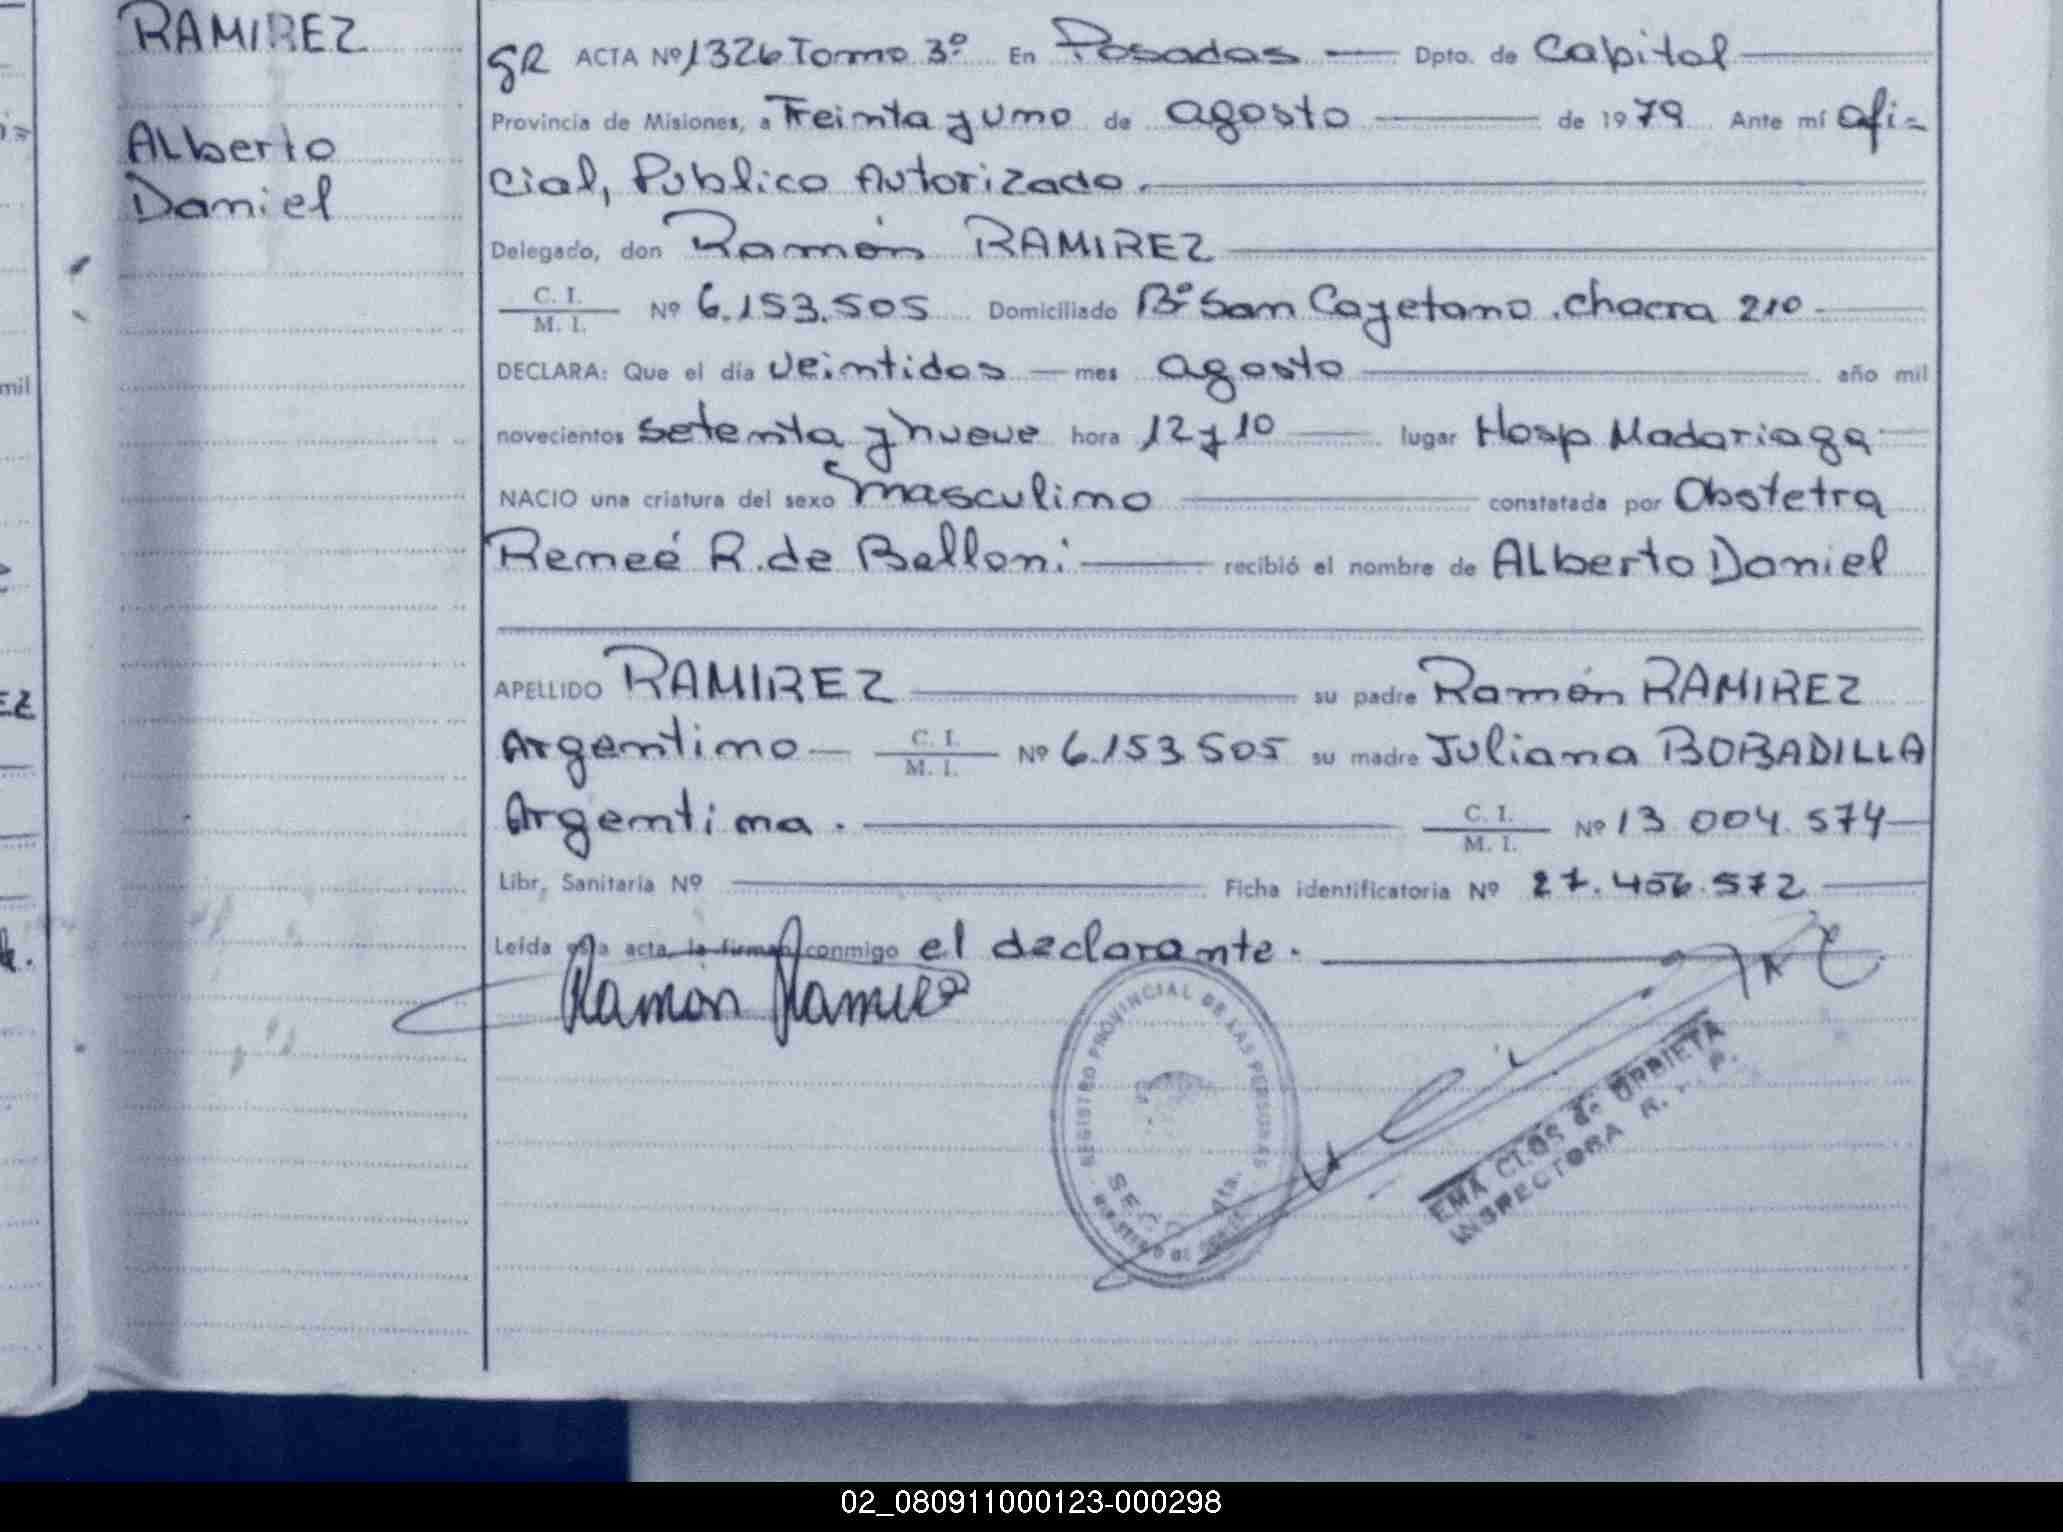 RAMIREZ
Alberto
Daniel
GR ACTA Nº 1326 Tomo 3º En Posadas Dpto. de Capital
Provincia de Misiones, a Treinta y uno de agosto de 1979 Ante mí ofi-
cial, Publico Autorizado.
Delegado, don Ramón RAMIREZ
C. I.
M. I. Nº 6.153.505 Domiciliado Bº San Cayetano. chacra 210
DECLARA: Que el día veintidos mes agosto año mil
novecientos setenta y nueve hora 12 y 10 lugar Hosp Madariaga
NACIO una criatura del sexo masculino constatada por Obstetra
Reneé R. de Belloni recibió el nombre de Alberto Daniel
APELLIDO RAMIREZ su padre Ramón RAMIREZ
Argentino C. I.
M. I. Nº 6.153.505 su madre Juliana BOBADILLA
Argentina. C. I.
M. I. Nº 13 004.574
Libr. Sanitaria Nº Ficha identificatoria Nº 27.456.572
Leída esta acta, la firman conmigo el declarante.
Ramón Ramirez
REGISTRO PROVINCIAL DE LAS PERSONAS
SECC 4ta.
EMA CLOS de URRIETA
INSPECTORA R. P. P.
mil
EZ
02_080911000123-000298